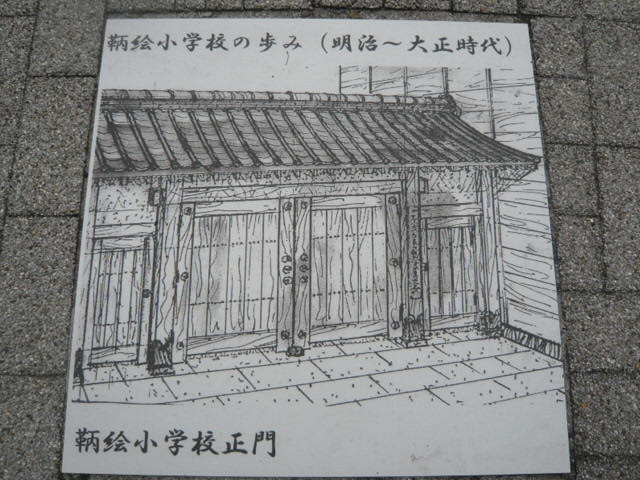 鞆絵小学校の歩み（明治～大正時代）
鞆絵小学校正門